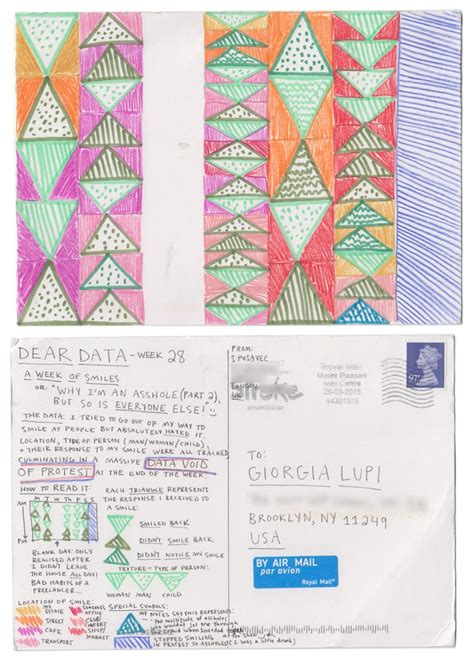 DEAR DATA - WEEK 28
A WEEK OF SMILES
OR: "WHY I'M AN ASSHOLE (PART 2),
BUT SO IS EVERYONE ELSE!"
THE DATA: I TRIED TO GO OUT OF MY WAY
TO SMILE AT PEOPLE BUT ABSOLUTELY HATED IT.
LOCATION, TYPE OF PERSON (MAN/WOMAN/CHILD),
+ THEIR RESPONSE TO MY SMILE WERE ALL TRACKED,
CULMINATING IN A MASSIVE DATA VOID
OF PROTEST AT THE END OF THE WEEK.
HOW TO READ IT:
AM
M T W TH F S S
PM
BLANK DAY: ONLY
REALISED AFTER
I DIDN'T LEAVE
THE HOUSE ALL DAY!
BAD HABITS OF A
FREELANCER...
EACH TRIANGLE REPRESENTS
THE RESPONSE I RECEIVED TO
A SMILE:
SMILED BACK
DIDN'T SMILE BACK
DIDN'T NOTICE MY SMILE
TEXTURE = TYPE OF PERSON:
WOMAN MAN CHILD
LOCATION OF SMILE:
MY ESTATE
STREET
CAFE
TRANSPORT
SOMEONE'S OFFICE
CLUB/
SHOP/
MARKET
SPECIAL SYMBOLS:
MY NOTES SAY THIS REPRESENTS
THE MULTITUDE OF ASSHOLES
STOPPED SMILING
IN PROTEST TO ASSHOLES (I WAS A LITTLE DRUNK)
FROM:
S POSAVEC
LONDON
UK
Royal Mail
Mount Pleasant
Mail Centre
26-03-2015
TO:
GIORGIA LUPI
BROOKLYN, NY 11249
USA
BY AIR MAIL
par avion
Royal Mail